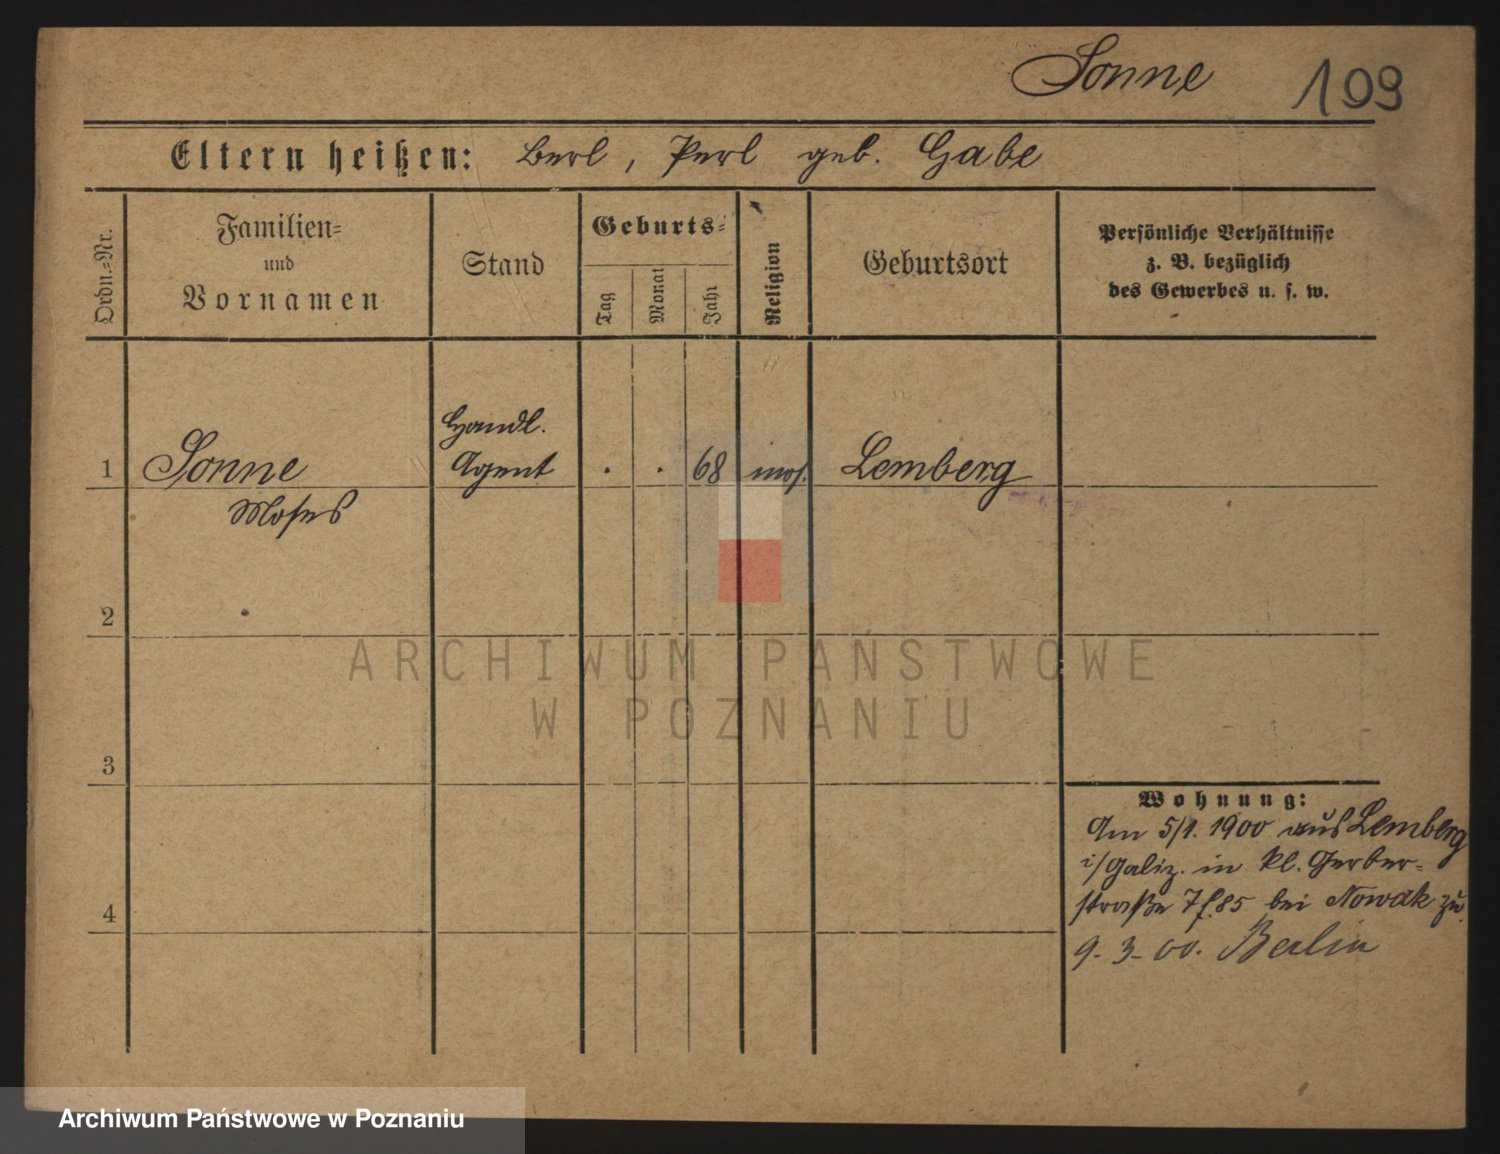 Sonne 109
Eltern heißen: Berl, Perl geb. Gabe
Ordn.=Nr.
Familien=
und
Vornamen
Stand
Geburts=
Tag
Monat
Jahr
Religion
Geburtsort
Persönliche Verhältnisse
z. B. bezüglich
des Gewerbes u. s. w.
Handl.
1 Sonne Agent . . 68 mos. Lemberg
Moses
2
ARCHIWUM PAŃSTWOWE
W POZNANIU
3
Wohnung:
Am 5/1. 1900 aus Lemberg
i/Galiz. in kl. Gerber-
straße 7 f. 85 bei Nowak zu.
4
9. 3. 00. Berlin
Archiwum Państwowe w Poznaniu